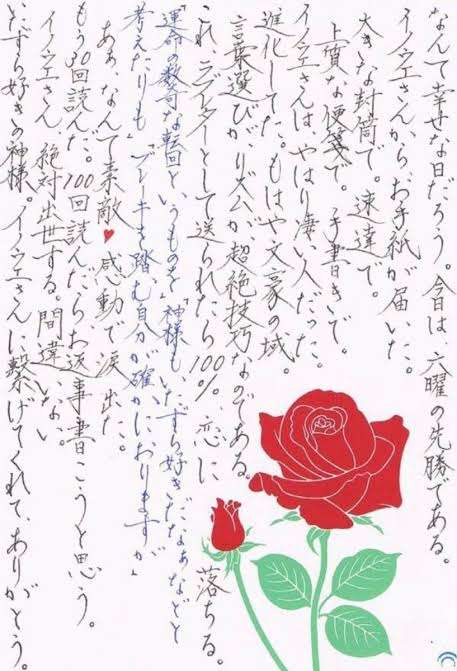 なんて幸せな日だろう。今日は、六曜の先勝である。
イノウエさんからお手紙が届いた。
大きな封筒で。速達で。
上質な便箋で。手書きで。
イノウエさんはやはり凄い人だった。
進化してた。もはや文豪の域。
言葉選びがリズムが超絶技巧なのである。
これ、ラブレターとして送られたら100%、恋に落ちる。
「運命の数奇な転回というものを」「神様もいたずら好きだなぁなどと
考えたりも」「ブレーキを踏む自分が確かにおりますが」
あぁ、なんて素敵♥感動で涙出た。
もう30回読んだ。100回読んだらお返事書こうと思う。
イノウエさん絶対出世する。間違いない
いたずら好きの神様。イノウエさんに繋げてくれて、ありがとう。